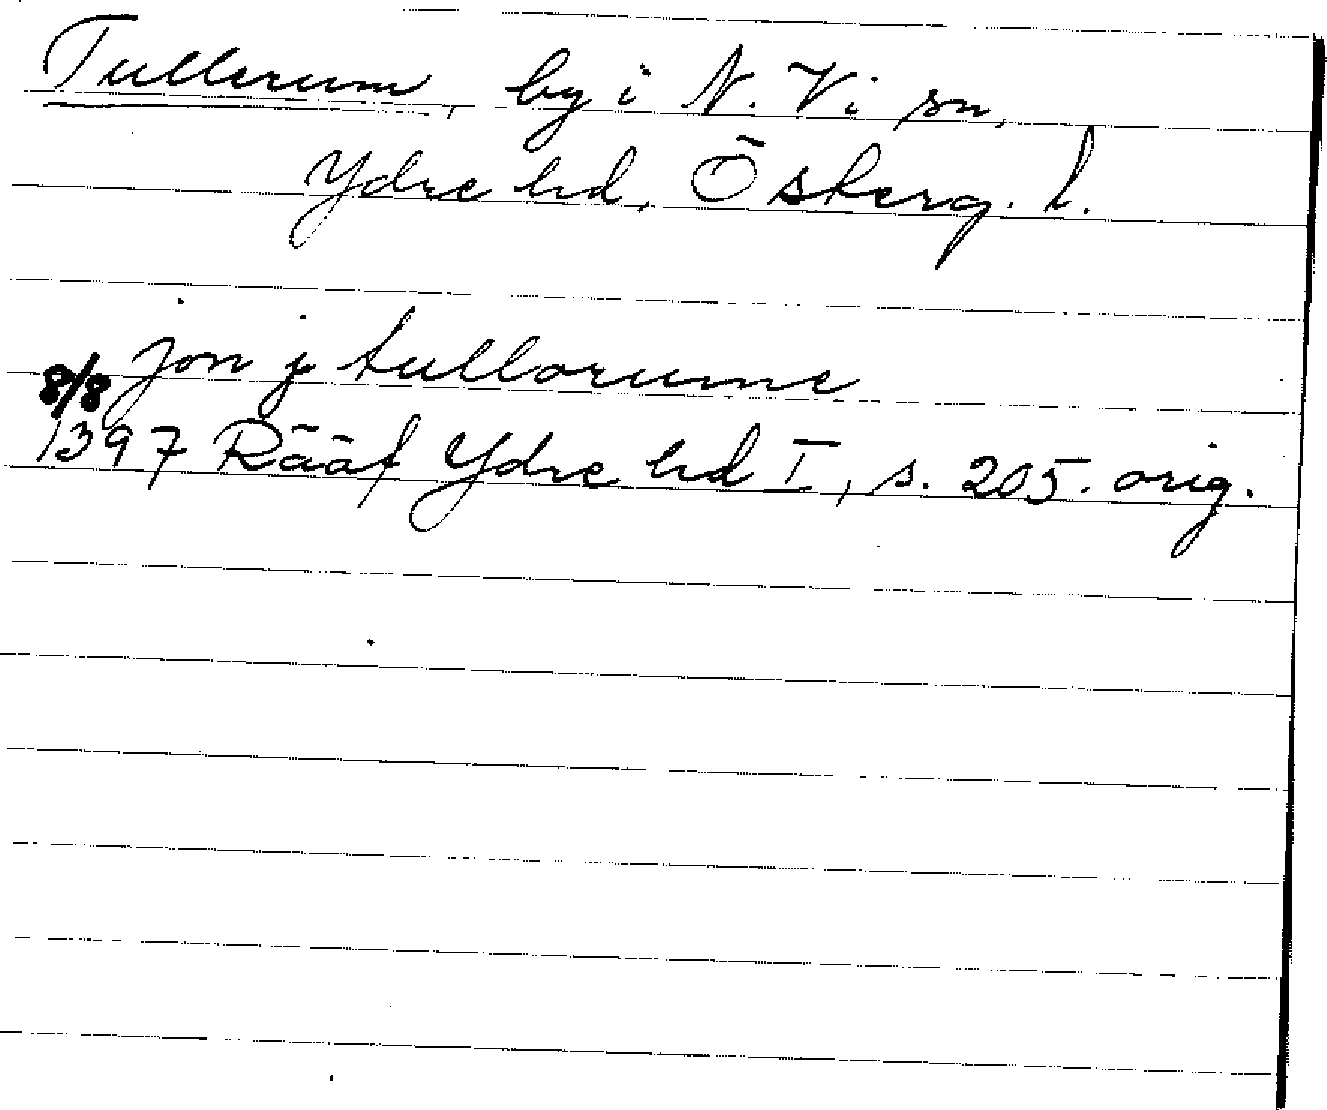 Tullerum, by i N. Vi sn,
Ydre hd, Österg. l.
jon j tullorume
8/8
1397 Rääf Ydre hd I, s. 205. orig.